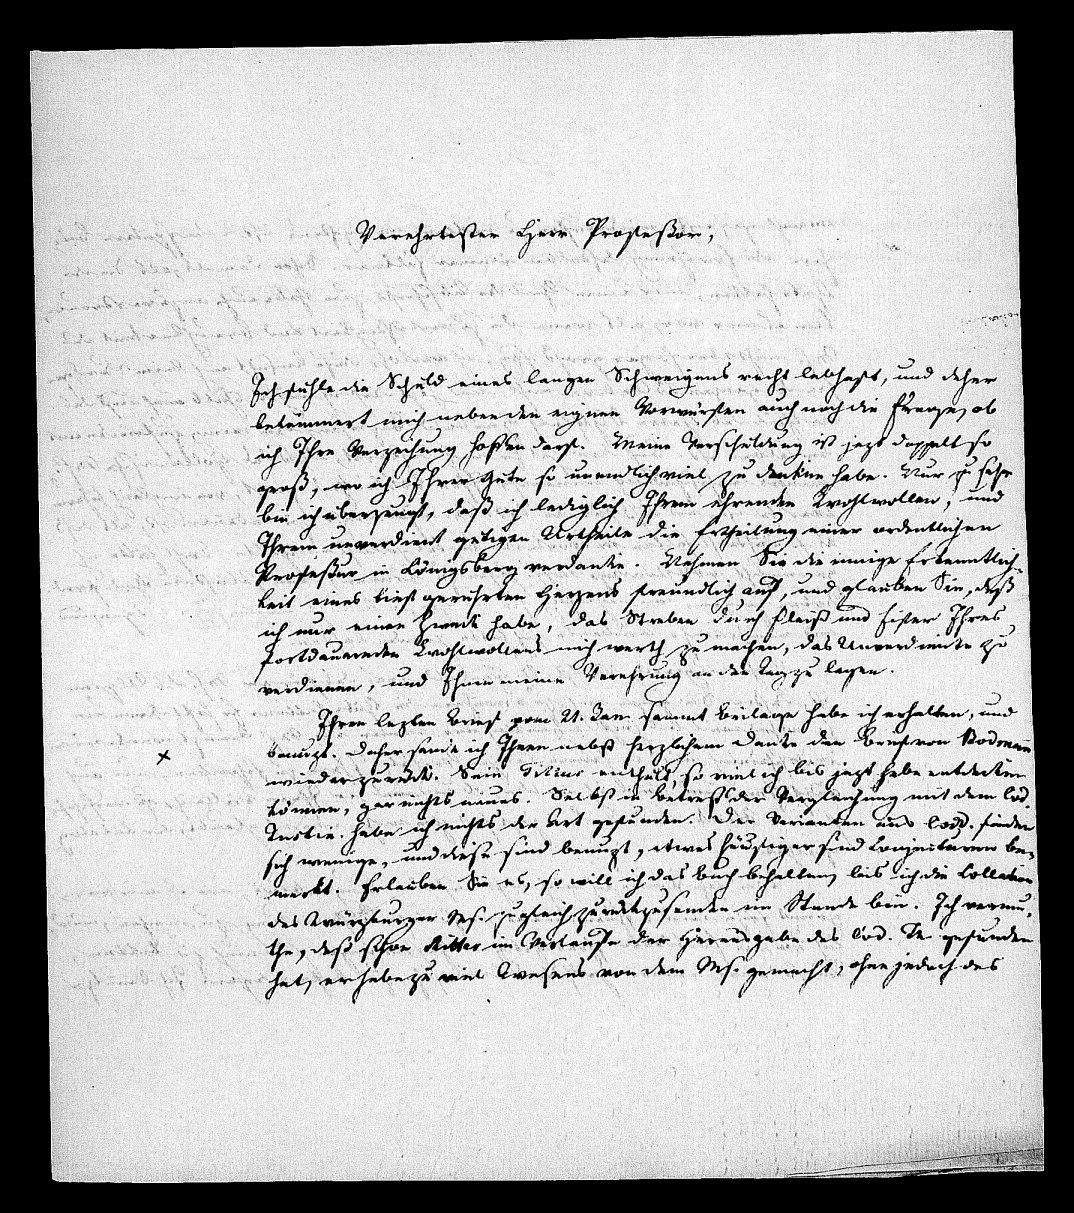 Verehrtester Herr Professor,
Ich fühle die Schuld eines langen Schweigens recht lebhaft, und daher
bekümmert mich neben den eignen Vorwürfen auch noch die Frage, ob
ich Ihre Verzeihung hoffen darf. Meine Verschuldung ist jezt doppelt so
groß, wo ich Ihrer Güte so unendlich viel zu danken habe. Nur zu sehr
bin ich überzeugt, daß ich lediglich Ihrem ehrenden Wohlwollen, und
Ihrem unverdient gütigen Urtheile die Ertheilung einer ordentlichen
Professur in Königsberg verdanke. Nehmen Sie die innige Erkenntlich-
keit eines tief gerührten Herzens freundlich auf, und glauben Sie, daß
ich nur einen Zweck habe, das Streben durch Fleiß und Eifer Ihres
fortdauernden Wohlwollens mich werth zu machen, das Unverdiente zu
verdienen, und Ihnen meine Verehrung an den Tag zu legen.
Ihren lezten Brief vom 21. Jan. sammt Beilage habe ich erhalten, und
benuzt. Daher sende ich Ihnen nebst herzlichem Danke den Brief von Bodmann
wieder zurück. Sein enthält, so viel ich bis jezt habe entdecken
können, gar nichts neues. Selbst in betreff der Vergleichung mit dem Cod.
habe ich nichts der Art gefunden. Der Varianten aus Codd. finden
sich wenige, und diese sind benuzt, etwas häufiger sind Conjecturen be-
merkt. Erlauben Sie es, so will ich das Buch behalten, bis ich die Collation
des Würzburger Ms. zugleich zurückzusenden im Stande bin. Ich vermu-
the, daß schon Ritter im Verlaufe der Herausgabe des Cod. Th. gefunden
hat, er habe zu viel Wesens von dem Ms. gemacht, ohne jedoch das